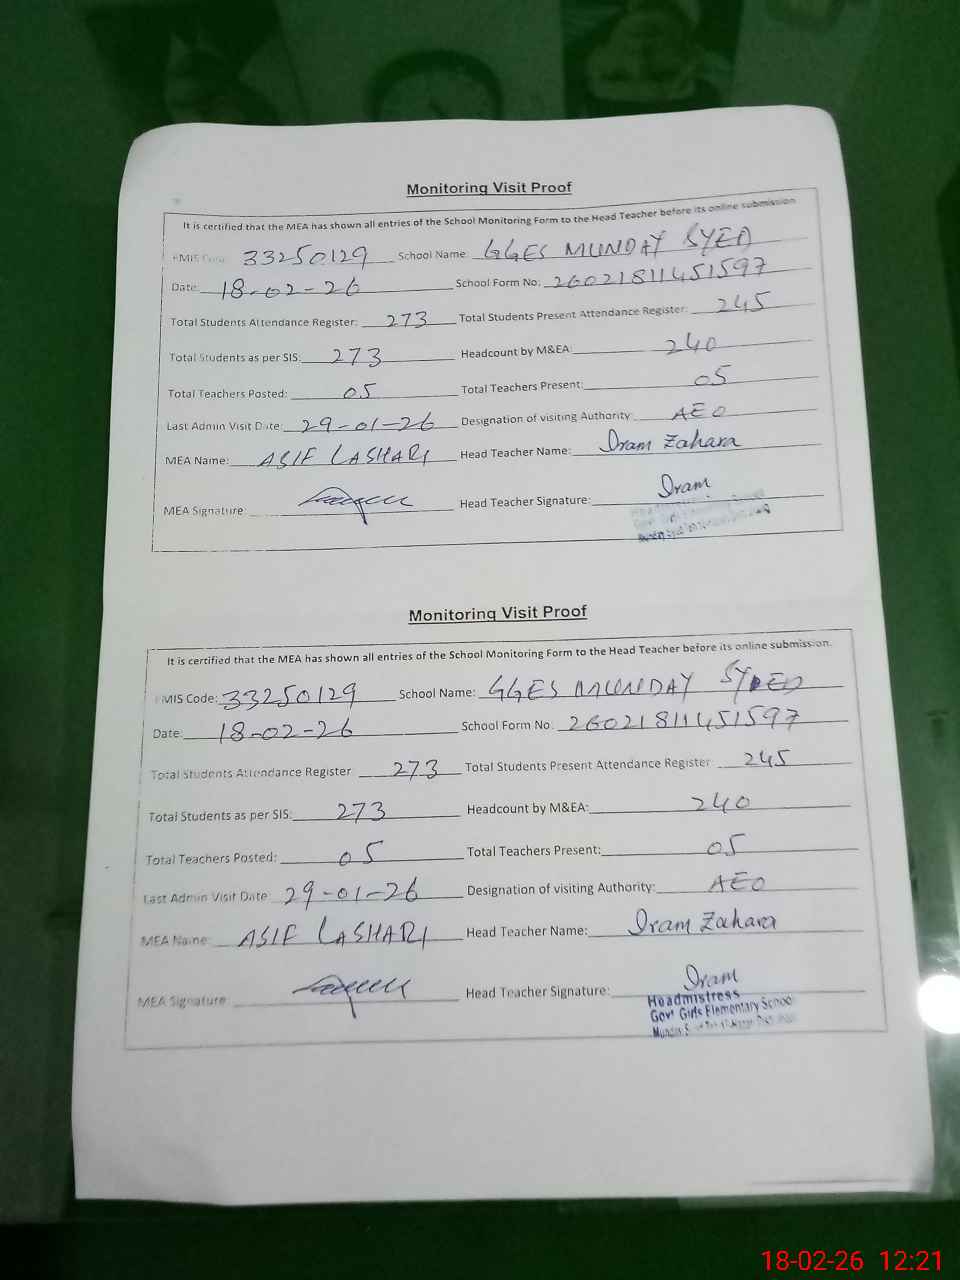 Monitoring Visit Proof
It is certified that the MEA has shown all entries of the School Monitoring Form to the Head Teacher before its online submission
EMIS Code: 33250129 School Name: GGES MUNDAY SYED
Date: 18-02-26 School Form No: 26021811451597
Total Students Attendance Register: 273 Total Students Present Attendance Register: 245
Total Students as per SIS: 273 Headcount by M&EA: 240
Total Teachers Posted: 05 Total Teachers Present: 05
Last Admin Visit Date: 29-01-26 Designation of visiting Authority: AEO
MEA Name: ASIF LASHARI Head Teacher Name: Iram Zahara
MEA Signature: Head Teacher Signature: Iram
Monitoring Visit Proof
It is certified that the MEA has shown all entries of the School Monitoring Form to the Head Teacher before its online submission.
EMIS Code: 33250129 School Name: GGES MUNDAY SYED
Date: 18-02-26 School Form No: 26021811451597
Total Students Attendance Register: 273 Total Students Present Attendance Register: 245
Total Students as per SIS: 273 Headcount by M&EA: 240
Total Teachers Posted: 05 Total Teachers Present: 05
Last Admin Visit Date: 29-01-26 Designation of visiting Authority: AEO
MEA Name: ASIF LASHARI Head Teacher Name: Iram Zahara
MEA Signature Head Teacher Signature: Iram
Headmistress
Govt Girls Elementary School
18-02-26 12:21